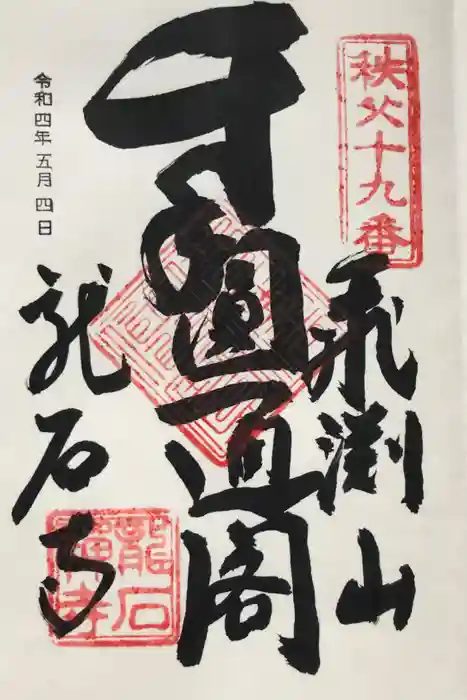 秩父十九番
飛淵山
圓通閣
令和四年五月四日
龍石寺
龍石
寺